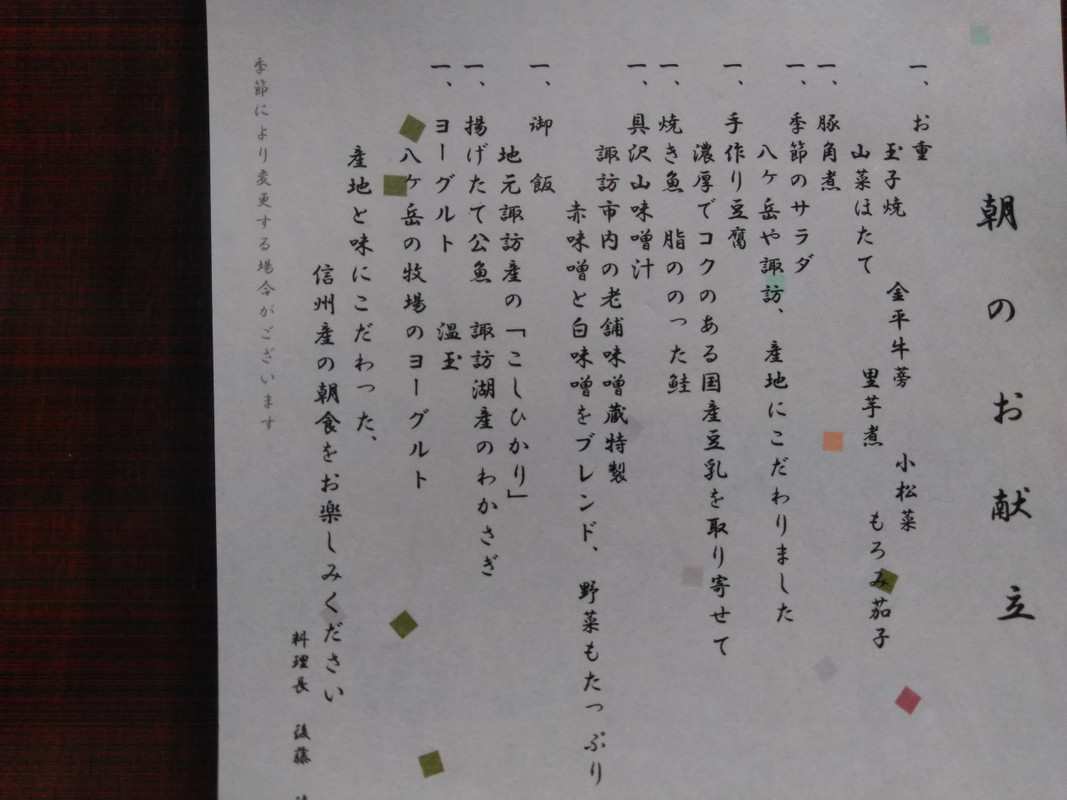 朝のお献立
一、お重
玉子焼　金平牛蒡　小松菜
山菜ほたて　里芋煮　もろみ茄子
一、豚角煮
一、季節のサラダ
八ケ岳や諏訪、産地にこだわりました
一、手作り豆腐
濃厚でコクのある国産豆乳を取り寄せて
一、焼き魚　脂ののった鮭
一、具沢山味噌汁
諏訪市内の老舗味噌蔵特製
赤味噌と白味噌をブレンド、野菜もたっぷり
一、御飯
地元諏訪産の「こしひかり」
一、揚げたて公魚　諏訪湖産のわかさぎ
一、ヨーグルト　温玉
八ケ岳の牧場のヨーグルト
産地と味にこだわった、
信州産の朝食をお楽しみください
料理長　後藤
季節により変更する場合がございます